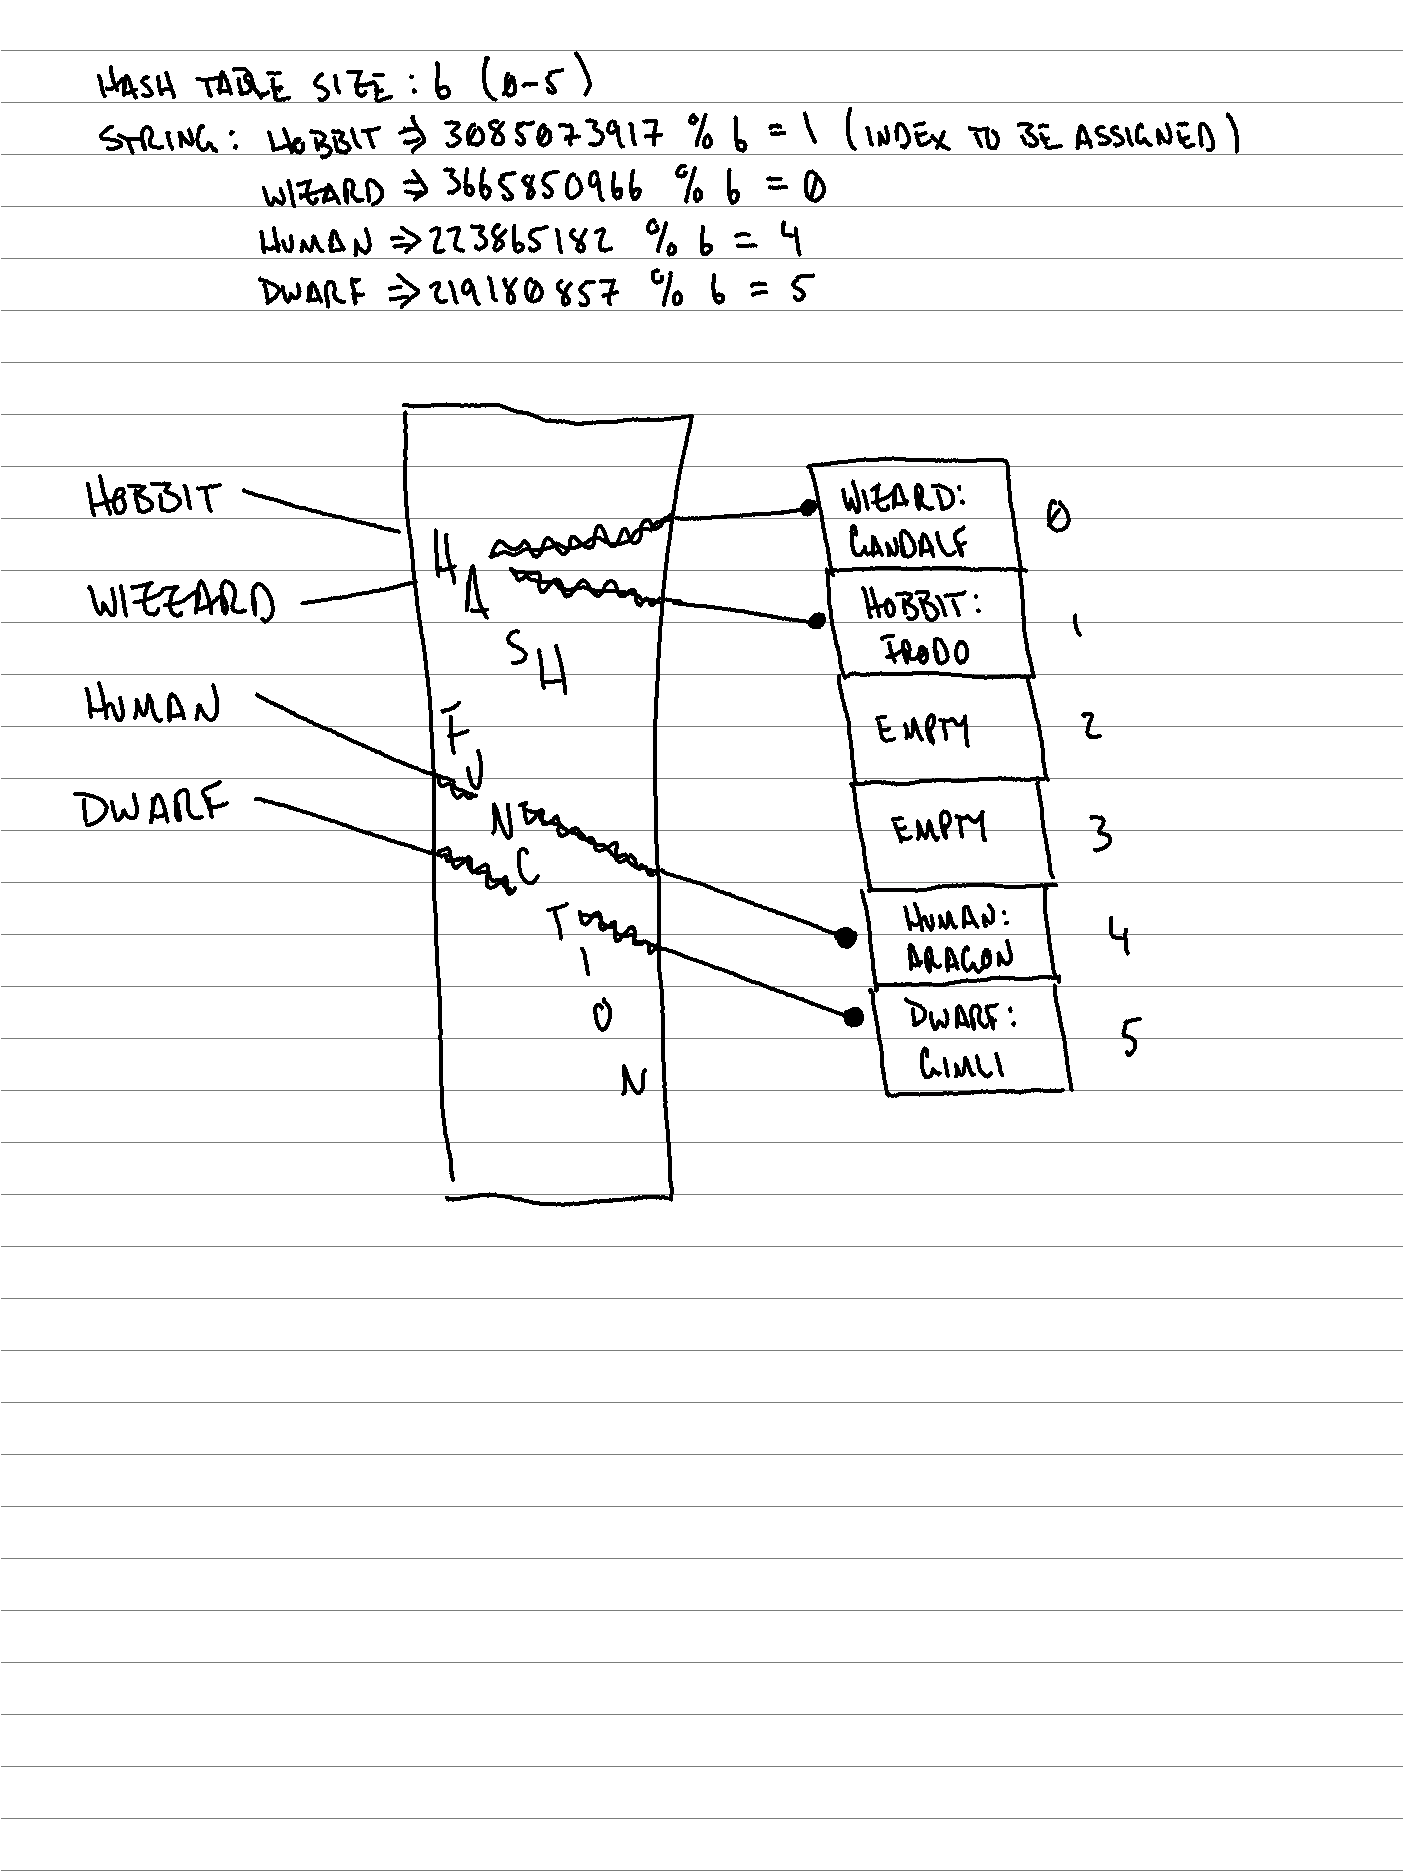 HASH TABLE SIZE: 6 (0-5)
STRING: HOBBIT => 3085073917 % 6 = 1 (INDEX TO BE ASSIGNED)
WIZARD => 3665850966 % 6 = 0
HUMAN => 223865182 % 6 = 4
DWARF => 219180857 % 6 = 5
HOBBIT
WIZZARD
HUMAN
DWARF
HASH
FUNCTION
WIZARD:
GANDALF
0
HOBBIT:
FRODO
1
EMPTY
2
EMPTY
3
HUMAN:
ARAGON
4
DWARF:
GIMLI
5